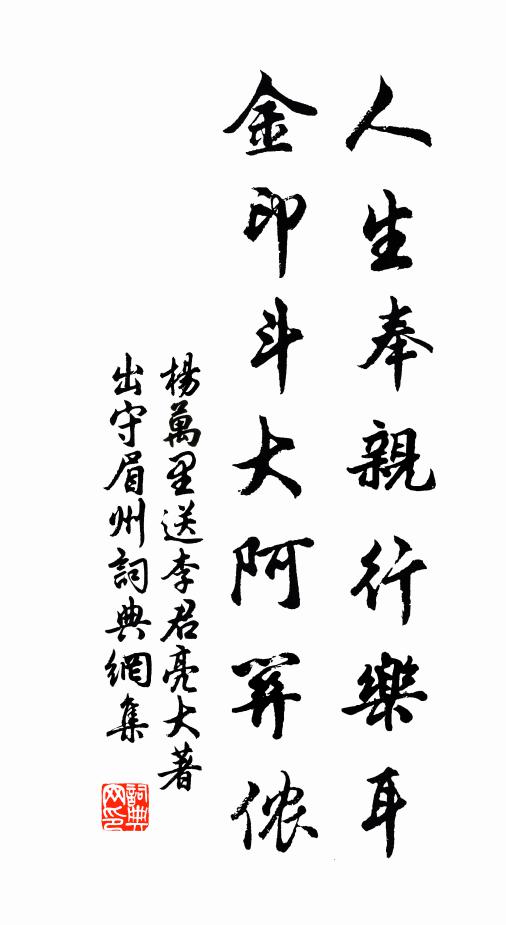 人生奉親行樂耳
金印斗大阿侬
楊萬里送李君亮大著
出守眉州詞典網集
詞典
网印